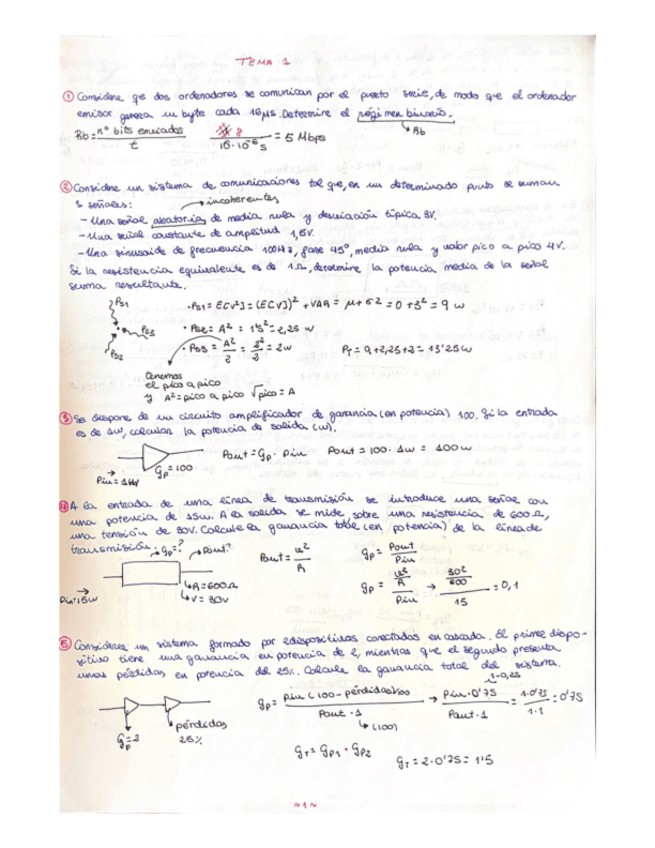 TEMA 1
① Considere que dos ordenadores se comunican por el puerto serie, de modo que el ordenador
emisor genera un byte cada 16μs. Determine el régimen binario.
Rb = nº bits enviados / t   8 / 16·10⁻⁶ s = 5 Mbps
Rb
② Considere un sistema de comunicaciones tal que, en un determinado punto se suman
3 señales: → incoherentes
- Una señal aleatoria de media nula y desviación típica 3V.
- Una señal constante de amplitud 1,5V.
- Una sinusoide de frecuencia 100Hz, fase 45º, media nula y valor pico a pico 4V.
Si la resistencia equivalente es de 1Ω, determine la potencia media de la señal
suma resultante.
PS1
· PS1 = E[V²] = (E[V])² + VAR = μ + σ2 = 0 + 3² = 9 w
PS3
· PS2 = A² = 1'5² = 2,25 w
PS2
· PS3 = A²/2 = 2²/2 = 2w   PT = 9 + 2,25 + 2 = 13'25w
Tenemos
el pico a pico
y A² = pico a pico √pico = A
③ Se dispone de un circuito amplificador de ganancia (en potencia) 100. Si la entrada
es de 1w, calcular la potencia de salida (w).
Pout = Gp · Pin   Pout = 100 · 1w = 100w
Gp = 100
Pin = 1W
④ A la entrada de una línea de transmisión se introduce una señal con
una potencia de 15w. A la salida se mide sobre una resistencia de 600Ω,
una tensión de 30V. Calcule la ganancia total (en potencia) de la línea de
transmisión. → gp=? → Pout?
Pout = u²/R   gp = Pout/Pin
→ R = 600Ω
gp = u²/R / Pin → 30²/600 / 15 = 0,1
Pin=15w
→ V = 30V
⑤ Considere un sistema formado por 2 dispositivos conectados en cascada. El primer dispo-
sitivo tiene una ganancia en potencia de 2, mientras que el segundo presenta
unas pérdidas en potencia del 25%. Calcule la ganancia total del sistema.
1-0,25
gp = Pin (100 - pérdidas)/100 / Pout · 1 → Pin · 0'75 / Pout · 1 = 1·0'75 / 1·1 = 0'75
→ (100)
Gp = 2
pérdidas
25%
Gτ = Gp1 · Gp2
Gτ = 2·0'75 = 1'5
~1~